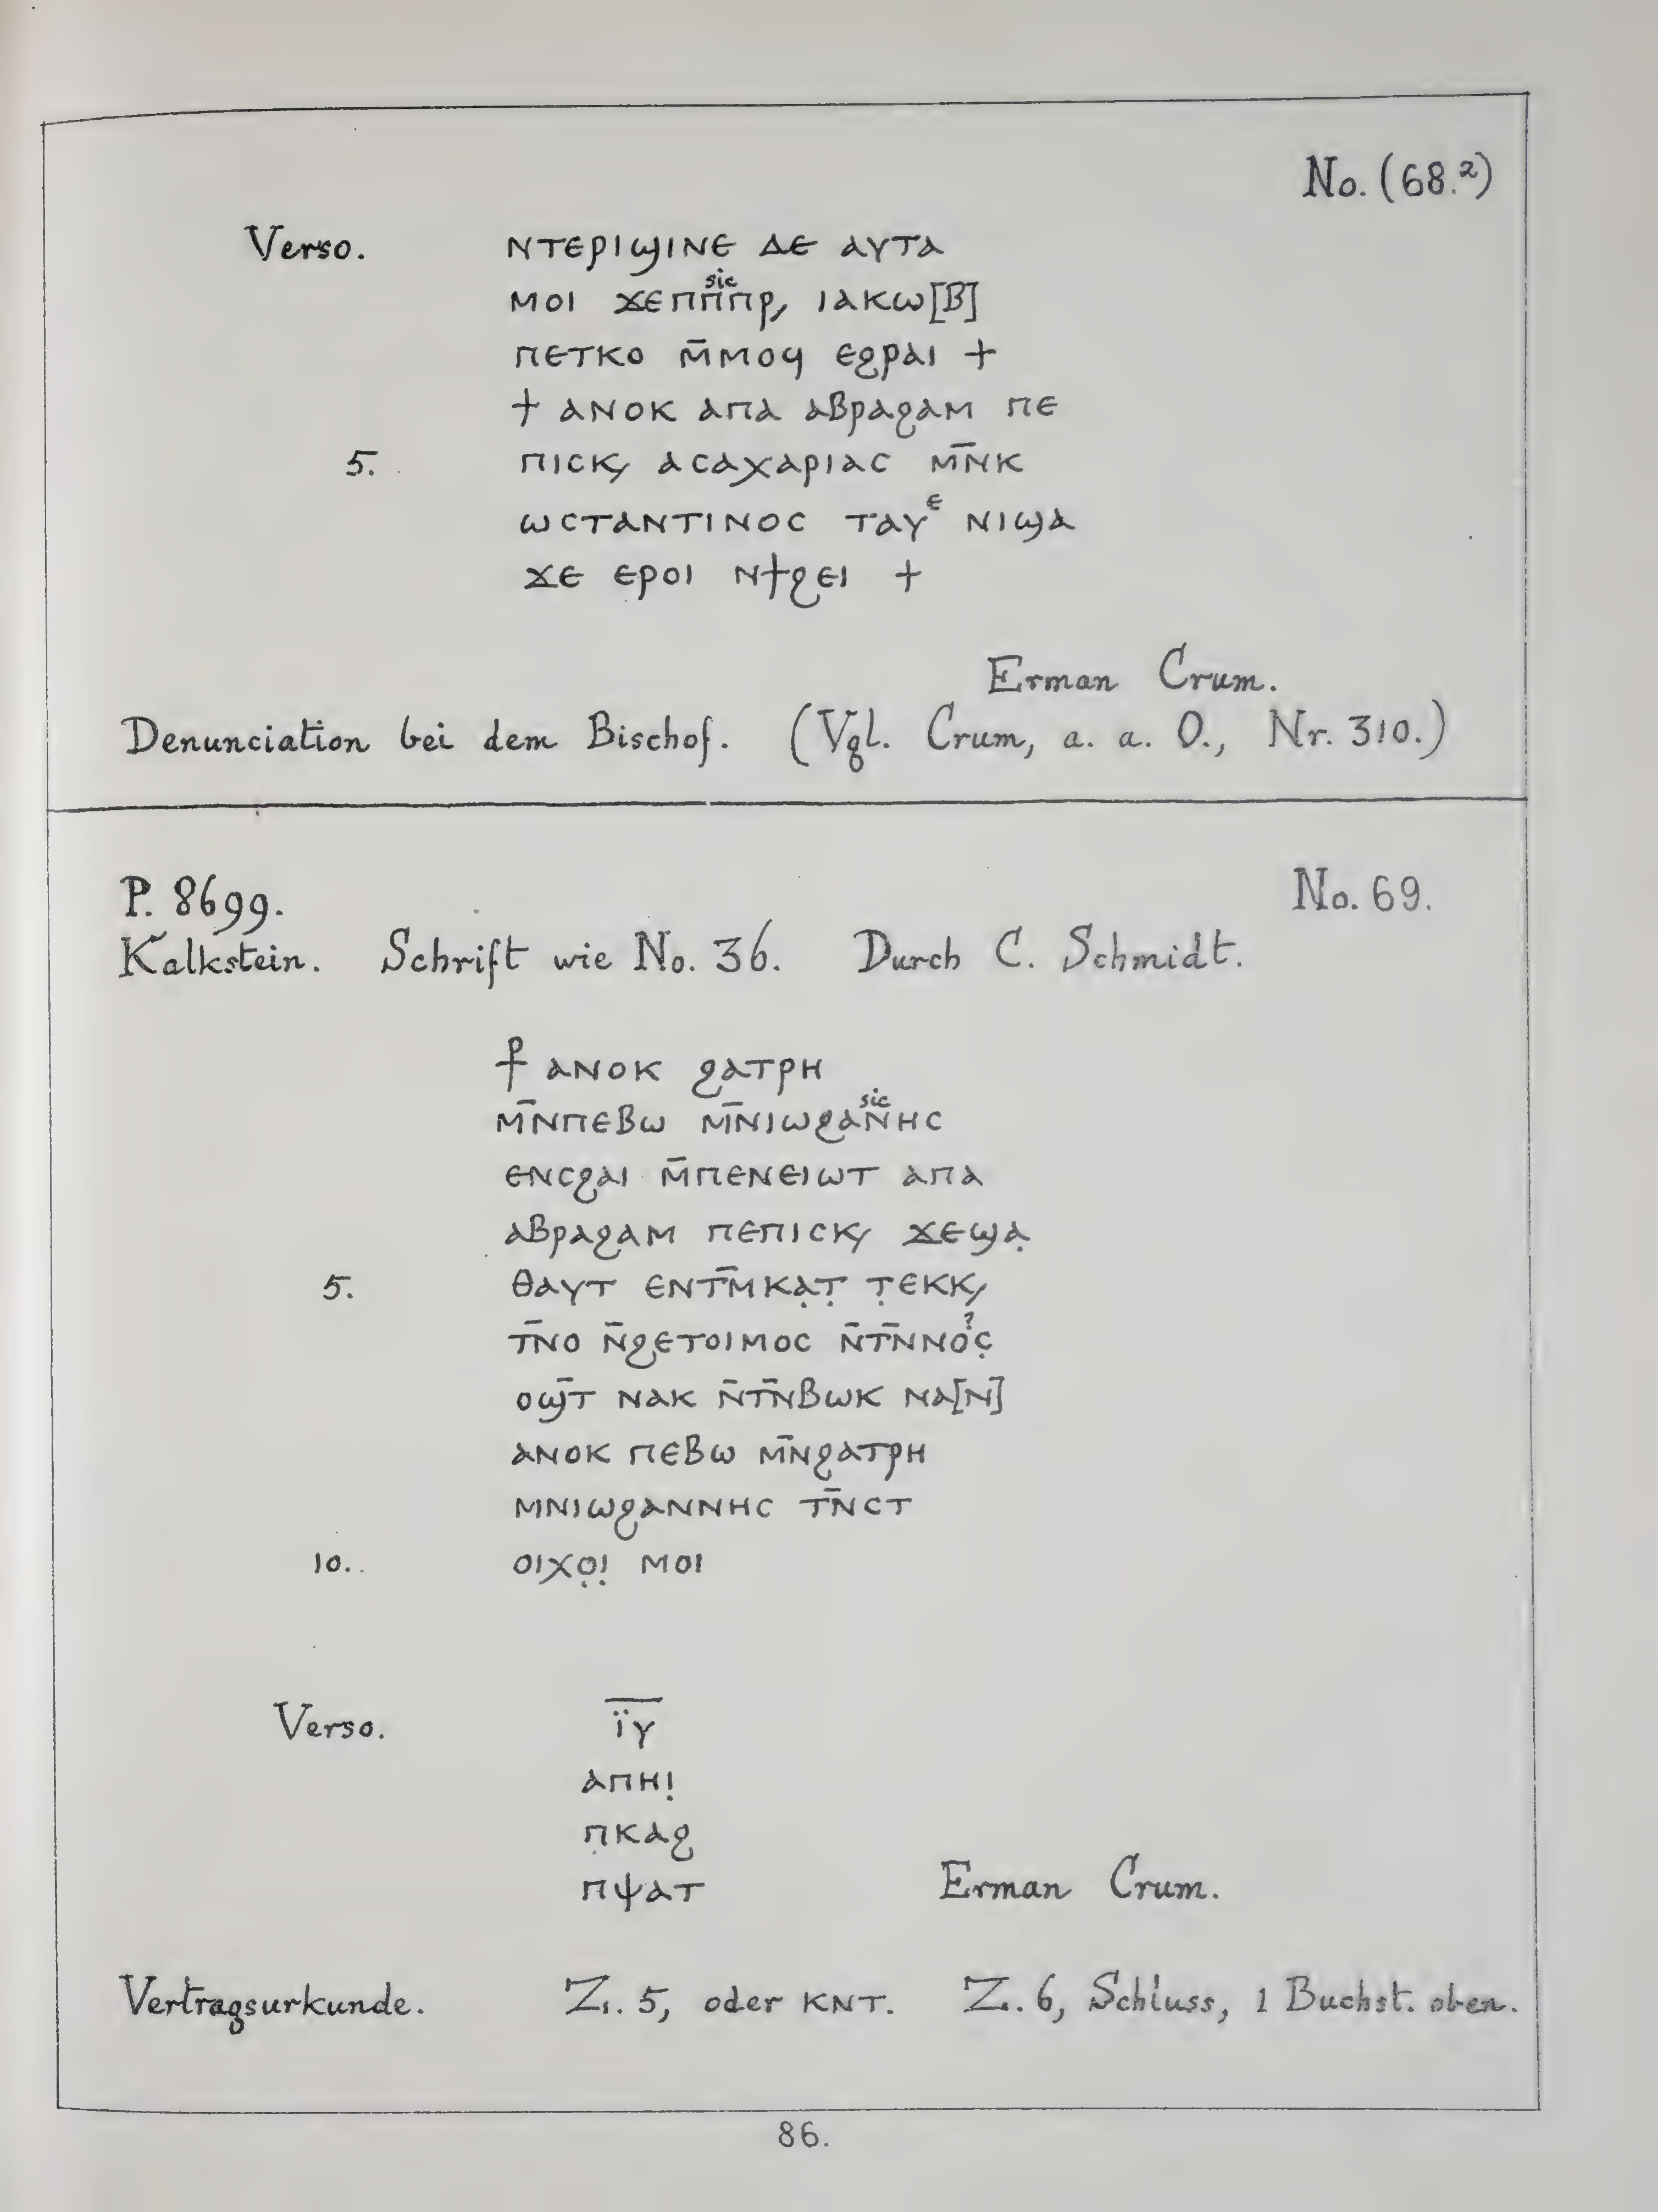 No. (68.²)
Verso. ⲛⲧⲉⲣⲓϣⲓⲛⲉ ⲇⲉ ⲁⲩⲧⲁ
sic
ⲙⲟⲓ ϫⲉⲡⲡⲡⲣ, ⲓⲁⲕⲱ[ⲃ]
ⲡⲉⲧⲕⲟ ⲙ̄ⲙⲟϥ ⲉϩⲣⲁⲓ +
+ ⲁⲛⲟⲕ ⲁⲡⲁ ⲁⲃⲣⲁϩⲁⲙ ⲡⲉ
5. ⲡⲓⲥⲕ, ⲁⲥⲁⲭⲁⲣⲓⲁⲥ ⲙ̄ⲛⲕ
ⲱⲥⲧⲁⲛⲧⲓⲛⲟⲥ ⲧⲁⲩᵉ ⲛⲓϣⲁ
ϫⲉ ⲉⲣⲟⲓ ⲛϯϩⲉⲓ +
Erman Crum.
Denunciation bei dem Bischof. (Vgl. Crum, a. a. O., Nr. 310.)
P. 8699. No. 69.
Kalkstein. Schrift wie No. 36. Durch C. Schmidt.
⳨ ⲁⲛⲟⲕ ϩⲁⲧⲣⲏ
sic
ⲙ̄ⲛⲡⲉⲃⲱ ⲙ̄ⲛⲓⲱϩⲁⲛ̄ⲏⲥ
ⲉⲛⲥϩⲁⲓ ⲙ̄ⲡⲉⲛⲉⲓⲱⲧ ⲁⲡⲁ
ⲁⲃⲣⲁϩⲁⲙ ⲡⲉⲡⲓⲥⲕ, ϫⲉϣⲁ̣
5. ⲑⲁⲩⲧ ⲉⲛⲧⲙ̄ⲕⲁ̣ⲧ̣ ⲧ̣ⲉⲕⲕ,
?
ⲧⲛ̄ⲟ ⲛ̄ϩⲉⲧⲟⲓⲙⲟⲥ ⲛ̄ⲧⲛ̄ⲛⲟⲥ̣
ⲟϣ̄ⲧ ⲛⲁⲕ ⲛ̄ⲧⲛ̄ⲃⲱⲕ ⲛⲁ[ⲛ]
ⲁⲛⲟⲕ ⲡⲉⲃⲱ ⲙ̄ⲛϩⲁⲧⲣⲏ
ⲙⲛⲓⲱϩⲁⲛⲛⲏⲥ ⲧⲛ̄ⲥⲧ
10. ⲟⲓⲭⲟ̣ⲓ̣ ⲙⲟⲓ
Verso. ⲓ̈ⲩ̅
ⲁⲡⲏⲓ̣
ⲡ̣ⲕⲁϩ
ⲡⲯⲁⲧ Erman Crum.
Vertragsurkunde. Z. 5, oder ⲕⲛⲧ. Z. 6, Schluss, 1 Buchst. oben.
86.